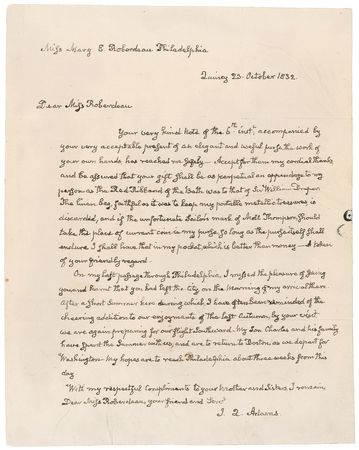 Miss Mary E. Roberdeau Philadelphia
Quincy 23. October 1832.
Dear Miss Roberdeau
Your very kind Note of the 6th inst. accompanied by
your very acceptable present of an elegant and useful purse the work of
your own hands, has reached me safely — Accept for them my cordial thanks
and be assured that your gift shall be as perpetual an appendage to my
person as the Red Ribband of the Bath was to that of Sir William Draper
The linen bag, faithful as it was to keep my portable metallic treasures is
discarded, and if the unfortunate Sailor's mark of Moll Thompson, should
take the place of current coin in my purse, so long as the purse itself shall
endure I shall have that in my pocket which is better than money — A token
of your friendly regard.
On my last passage through Philadelphia, I missed the pleasure of seeing
you and learnt that you had left the City on the Morning of my arrival there.
After a short Summer here during which I have often been reminded of the
cheering addition to our enjoyments of the last Autumn, by your visit
we are again preparing for our flight Southward. My Son Charles and his family
have spent the Summer with us, and are to return to Boston as we depart for
Washington. My hopes are to reach Philadelphia about three weeks from this
day
With my respectful compliments to your Mother and Sisters I remain,
Dear Miss Roberdeau, your friend and Servt
J. Q. Adams.